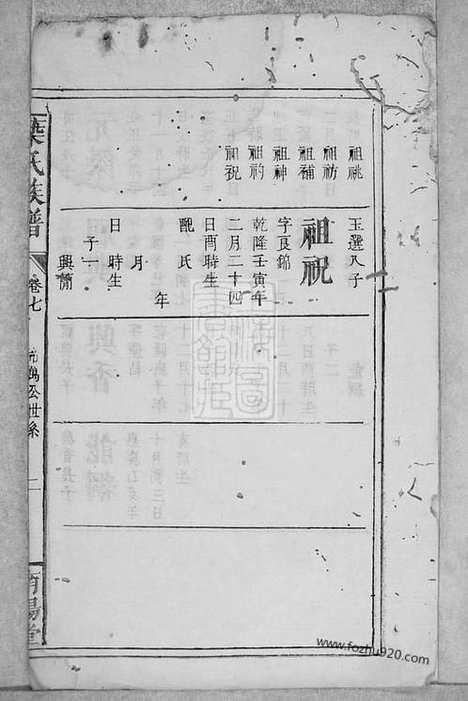 祖祧
祖祊
祖補
祖神
祖礿
祖祝
玉選八子
祖祝
字良錦
乾隆壬寅年
二月二十四
日酉時生
配氏
年
月
日時生
子一
興
葉氏族譜
卷七
萬公世系
二
南陽堂
www.fozhu920.com